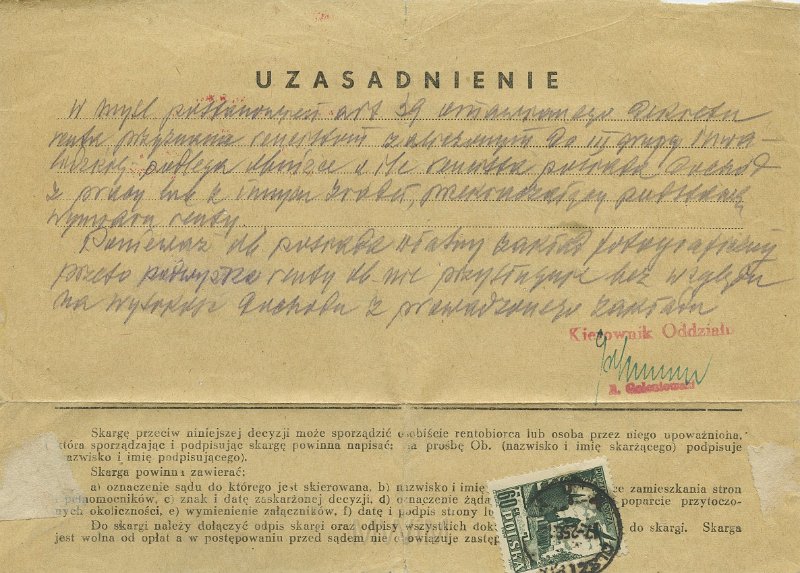 UZASADNIENIE
W myśl postanowień art 39 omawianego dekretu
renta przyznana rencistom zaliczonym do III grupy inwa-
lidzkiej podlega obniżce o ile rencista posiada dochód
z pracy lub z innych źródeł, przekraczający podstawę
wymiaru renty
Ponieważ ob posiada własny zakład fotograficzny
przeto podwyżka renty ob nie przysługuje bez względu
na wysokość dochodu z prowadzonego zakładu
Kierownik Oddziału
Skargę przeciw niniejszej decyzji może sporządzić osobiście rentobiorca lub osoba przez niego upoważniona,
która sporządzając i podpisując skargę powinna napisać: na prośbę Ob. (nazwisko i imię skarżącego) podpisuje
(nazwisko i imię podpisującego).
Skarga powinna zawierać:
a) oznaczenie sądu do którego jest skierowana, b) nazwisko i imię zamieszkania stron
pełnomocników, c) znak i datę zaskarżonej decyzji, d) oznaczenie żąda poparcie przytoczo-
nych okoliczności, e) wymienienie załączników, f) datę i podpis strony
Do skargi należy dołączyć odpis skargi oraz odpisy wszystkich dok do skargi. Skarga
jest wolna od opłat a w postępowaniu przed sądem nie obowiązuje zastęp
60 GR
POLSKA